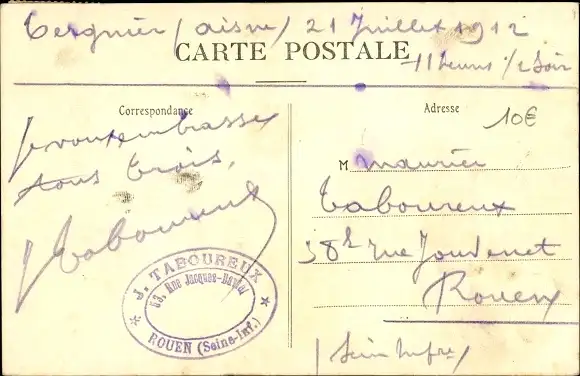 Tergnier (aisne) 21 Juillet 1912
CARTE POSTALE
11 heures 1/2 Soir
Correspondance
Adresse
10€
Je vous embrasse
tous trois,
J Taboureux
M maurice
Taboureux
58 rue Jouvenet
Rouen
(Sein Infre)
J. TABOUREUX
Rue Jacques-Daviel
ROUEN (Seine-Inf.)